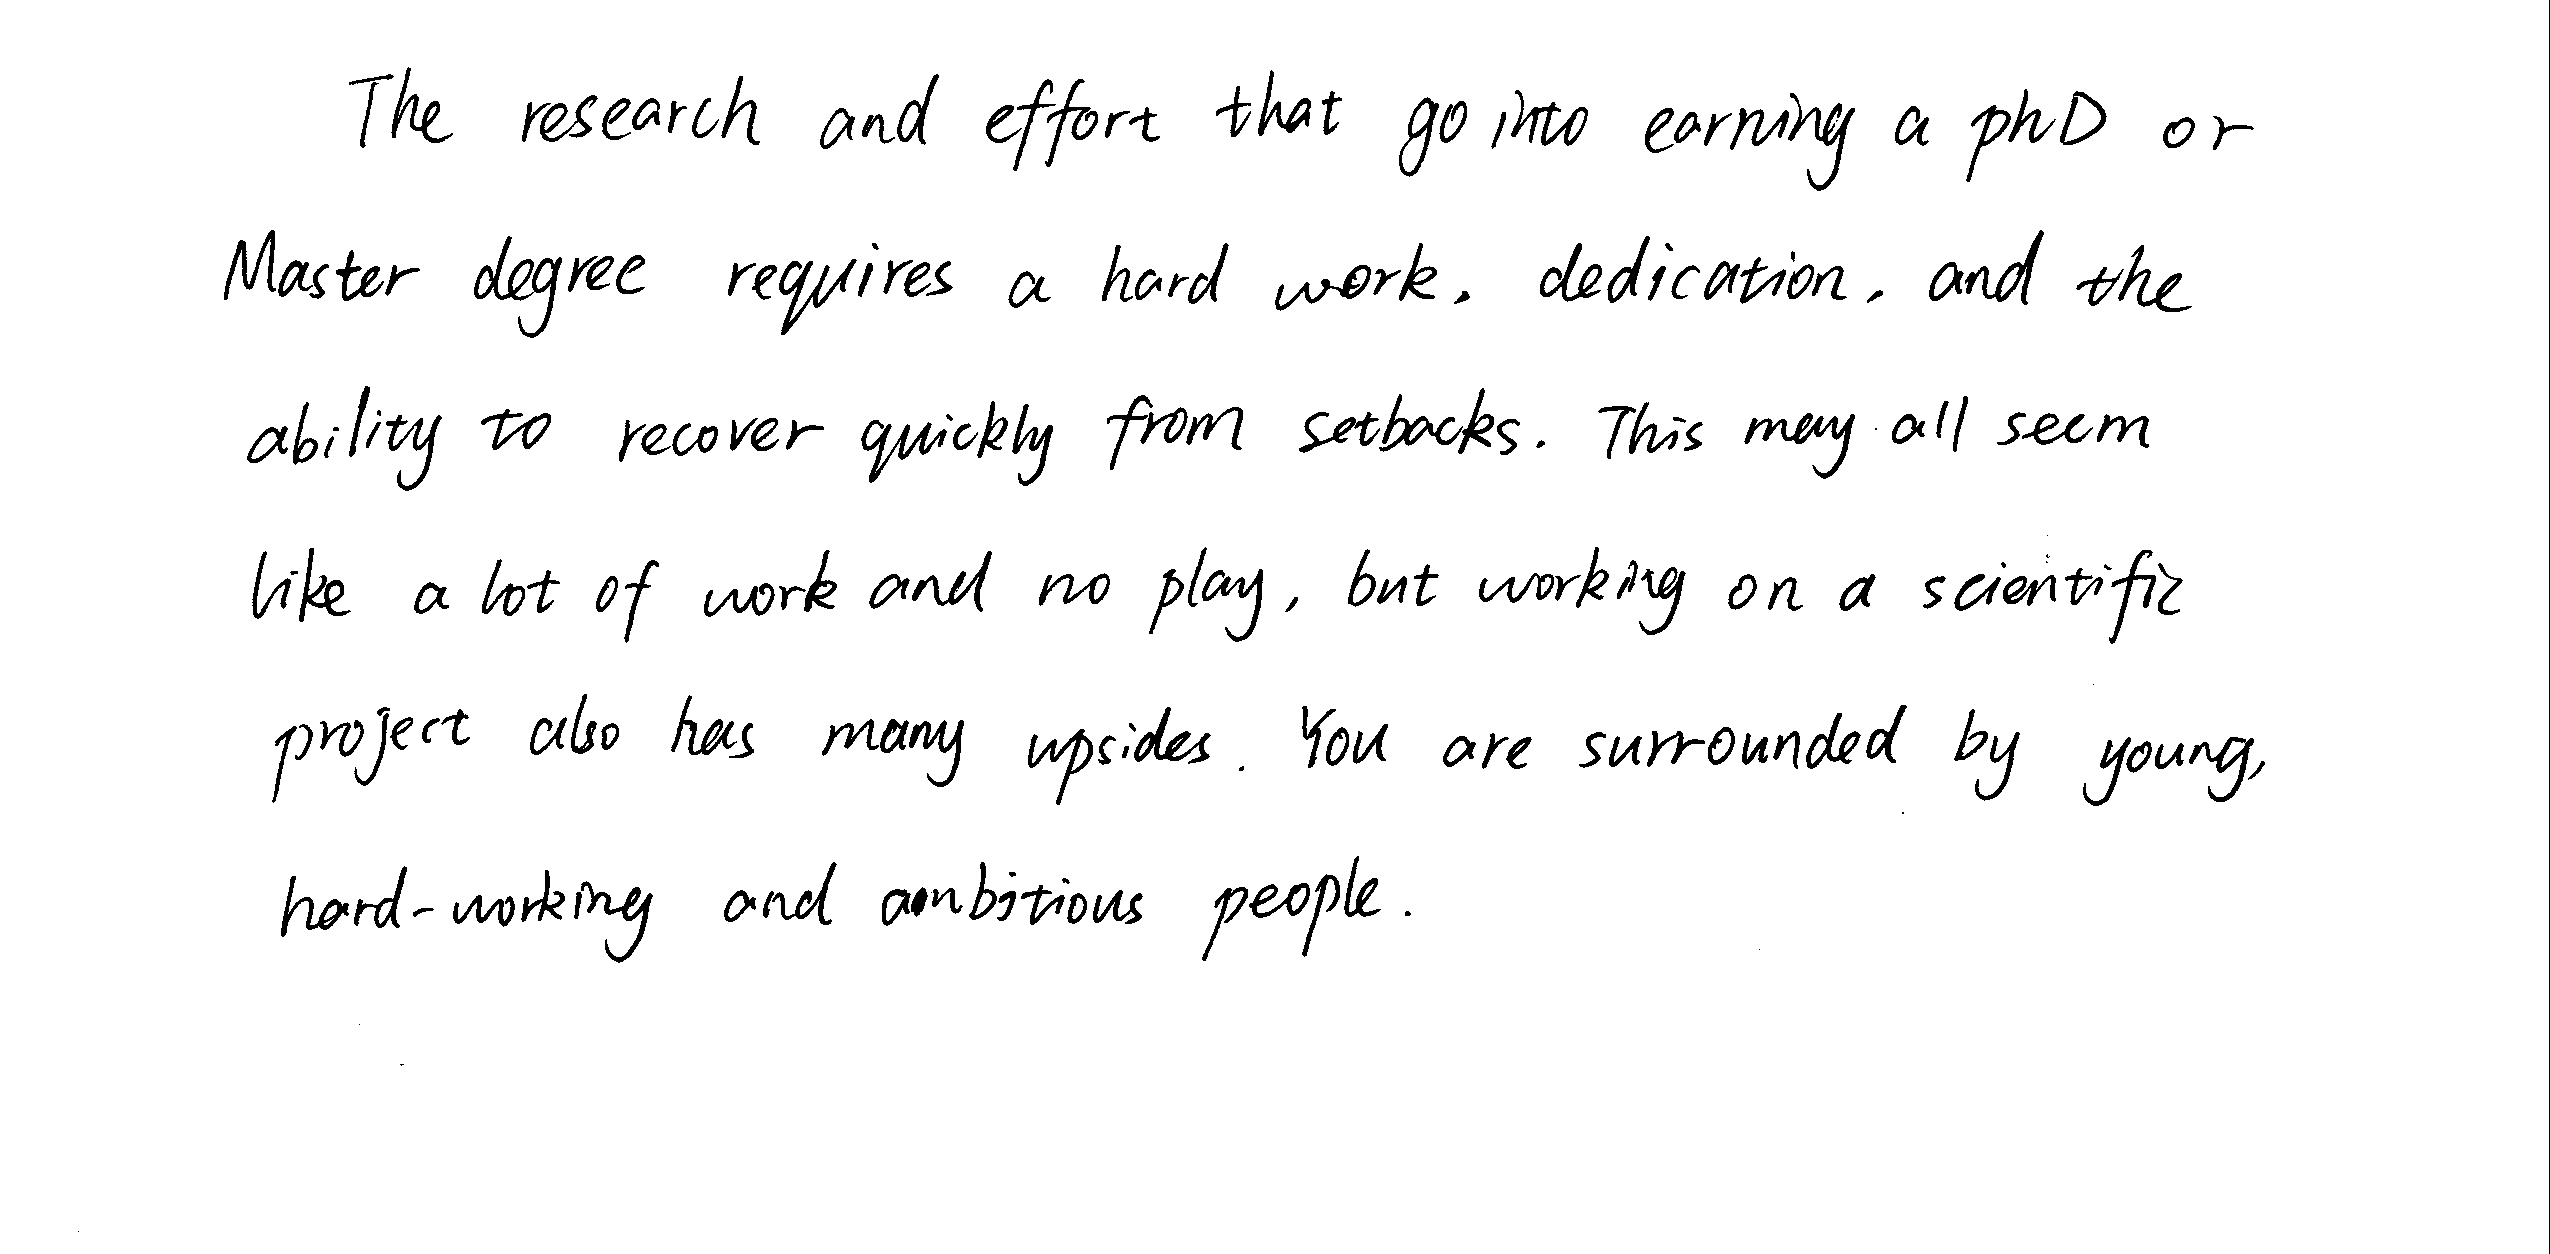 The research and effort that go into earning a phD or
Master degree requires a hard work, dedication, and the
ability to recover quickly from setbacks. This may all seem
like a lot of work and no play, but working on a scientific
project also has many upsides. You are surrounded by young,
hard-working and ambitious people.